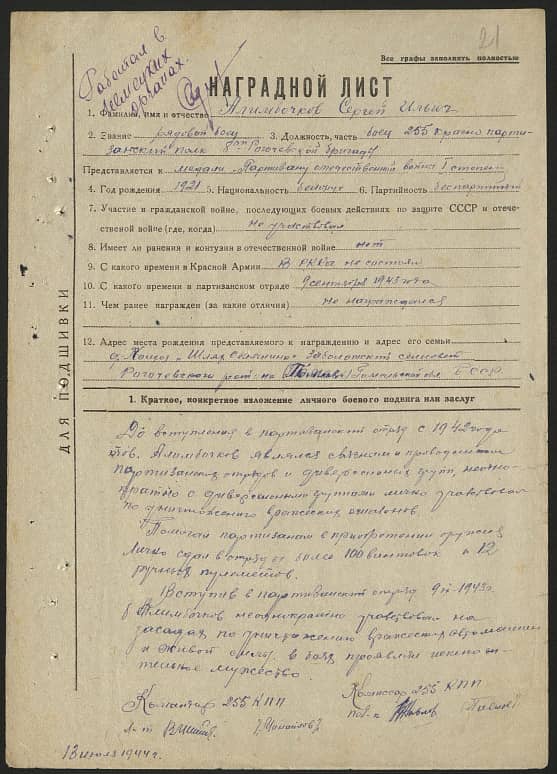 21
Все графы заполнять полностью
Работал в
немецких
органах.
НАГРАДНОЙ ЛИСТ
1. Фамилия, имя и отчество Алимбочков Сергей Ильич
2. Звание рядовой боец 3. Должность, часть боец 255 Красно парти-
занский полк 8ой Рогочевской бригады
Представляется к медали „Партизану отечественной войны" I степени
4. Год рождения 1921 5. Национальность белорус 6. Партийность беспартийный
7. Участие в гражданской войне, последующих боевых действиях по защите СССР и отече-
ственной войне (где, когда) не участвовал
8. Имеет ли ранения и контузии в отечественной войне нет
9. С какого времени в Красной Армии В РККА не состоял
10. С какого времени в партизанском отряде 9 сентября 1943 года
11. Чем ранее награжден (за какие отличия) не награждался
12. Адрес места рождения представляемого к награждению и адрес его семьи
Заболотский сельсовет
Рогочевского Гомельской обл БССР.
ДЛЯ ПОДШИВКИ
1. Краткое, конкретное изложение личного боевого подвига или заслуг
До вступления в партизанский отряд с 1942 года
тов. Алимбочков являлся связным и проводником
партизанских отрядов и диверсионных групп, неодно-
кратно с диверсионными группами лично участвовал
по уничтожению вражеских эшелонов.
Помогая партизанам в приобретении оружия
лично сдал в отряд более 100 винтовок и 12
ручных пулеметов.
Вступив в партизанский отряд 1943г.
Алимбочков неоднократно участвовал на
засадах по уничтожению вражеских автомашин
и живой силы, в боях проявлял исключи-
тельное мужество.
Командир 255 КПП
Комиссар 255 КПП
13 июля 1944 г.